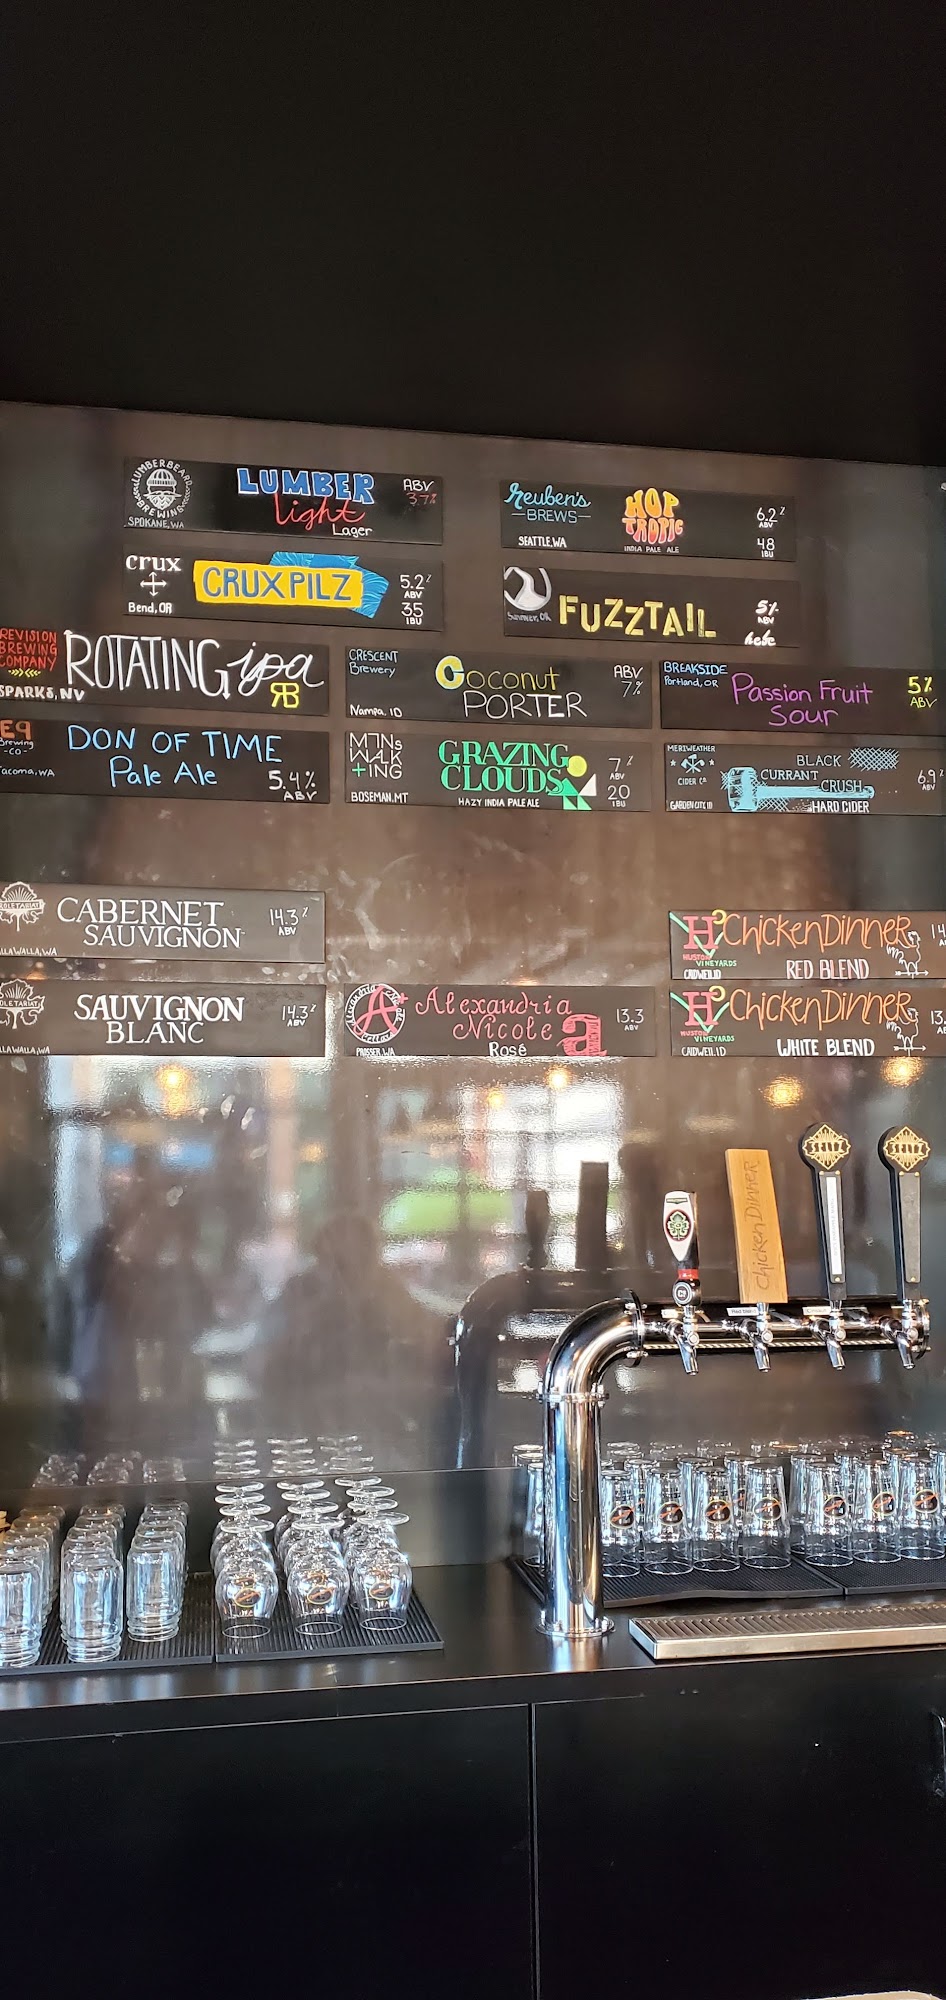 LUMBERBEARD
BREWING
SPOKANE, WA
LUMBER
light
Lager
ABV
3.7%
reuben's
BREWS
SEATTLE, WA
HOP
TROPIC
INDIA PALE ALE
6.2%
ABV
48
IBU
crux
Bend, OR
CRUX PILZ
5.2%
ABV
35
IBU
FUZZTAIL
5%
ABV
hefe
REVISION
BREWING
COMPANY
SPARKS, NV
ROTATING ipa
RB
CRESCENT
Brewery
Nampa, ID
Coconut
PORTER
ABV
7%
BREAKSIDE
Portland, OR
Passion Fruit
Sour
5%
ABV
E9
Brewing
-CO-
Tacoma, WA
DON OF TIME
Pale Ale
5.4%
ABV
MTNS
WALK
+ING
BOSEMAN, MT
GRAZING
CLOUDS
HAZY INDIA PALE ALE
7%
ABV
20
IBU
MERIWETHER
CIDER CO
GARDEN CITY, ID
BLACK
CURRANT
CRUSH
HARD CIDER
6.9%
ABV
OLETARIAT
LLA WALLA, WA
CABERNET
SAUVIGNON
14.3%
ABV
H
HUSTON
VINEYARDS
CALDWELL, ID
CHICKEN DINNER
RED BLEND
14
OLETARIAT
LLA WALLA, WA
SAUVIGNON
BLANC
14.3%
ABV
A
PROSSER, WA
Alexandria
Nicole
Rosé
a
13.3
ABV
H
HUSTON
VINEYARDS
CALDWELL, ID
CHICKEN DINNER
WHITE BLEND
13.
chicken Dinner
SELTZ
SELTZ